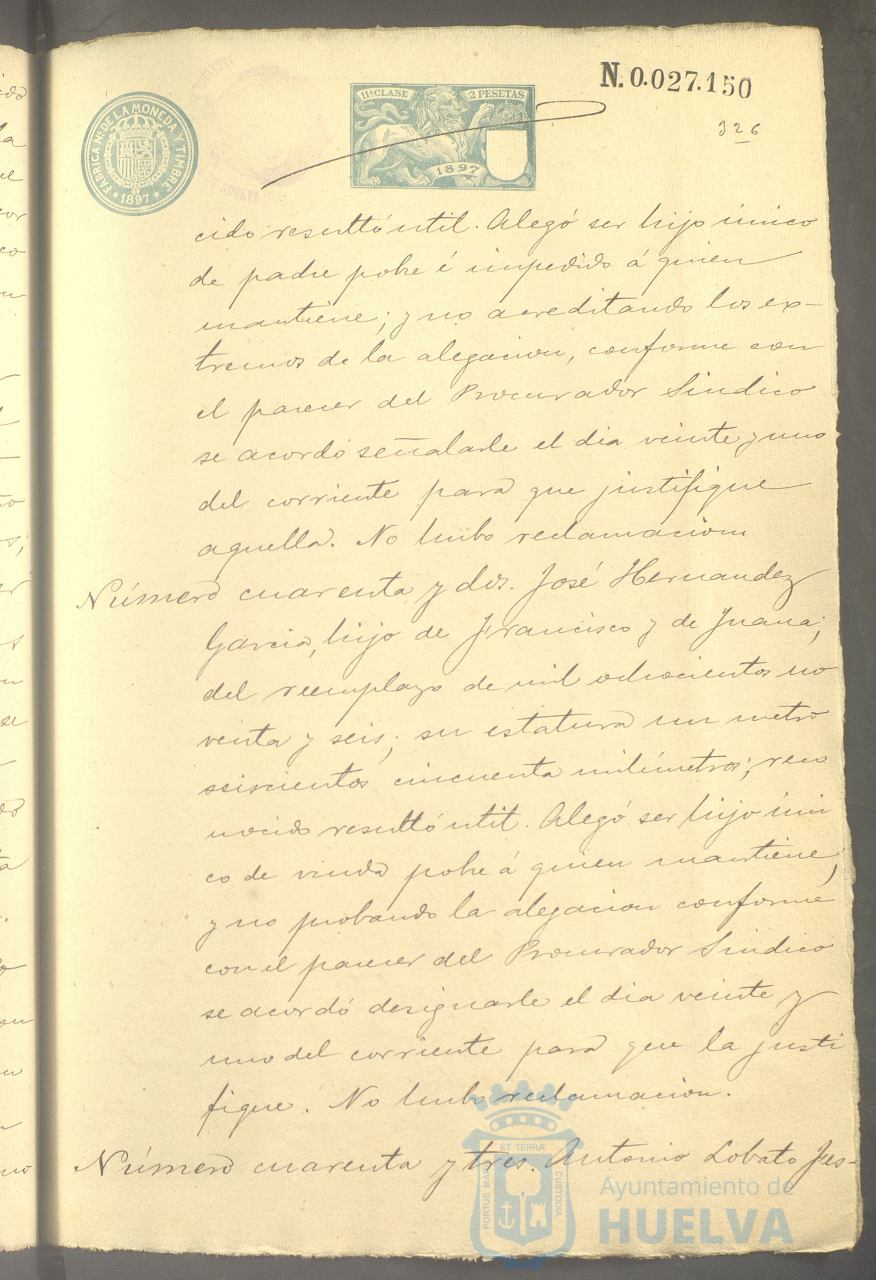 N. 0.027.150
326
FABRICA NL DE LA MONEDA Y TIMBRE
* 1897 *
11ª CLASE
2 PESETAS
1897
cido resultó util. Alegó ser hijo único
de padre pobre é impedido á quien
mantiene; y no acreditando los ex-
tremos de la alegacion, conforme con
el parecer del Procurador Sindico
se acordó señalarle el dia veinte y uno
del corriente para que justifique
aquella. No hubo reclamacion.
Número cuarenta y dos. José Hernandez
Garcia, hijo de Francisco y de Juana;
del reemplazo de mil ochocientos no
venta y seis; su estatura un metro
seiscientos cincuenta milímetros; reco
nocido resultó util. Alegó ser hijo úni
co de viuda pobre á quien mantiene;
y no probando la alegacion conforme
con el parecer del Procurador Sindico
se acordó designarle el dia veinte y
uno del corriente para que la justi
fique. No hubo reclamacion.
Número cuarenta y tres. Antonio Lobato
PORTUS MARIS ET TERRÆ CUSTODIA
Ayuntamiento de
HUELVA